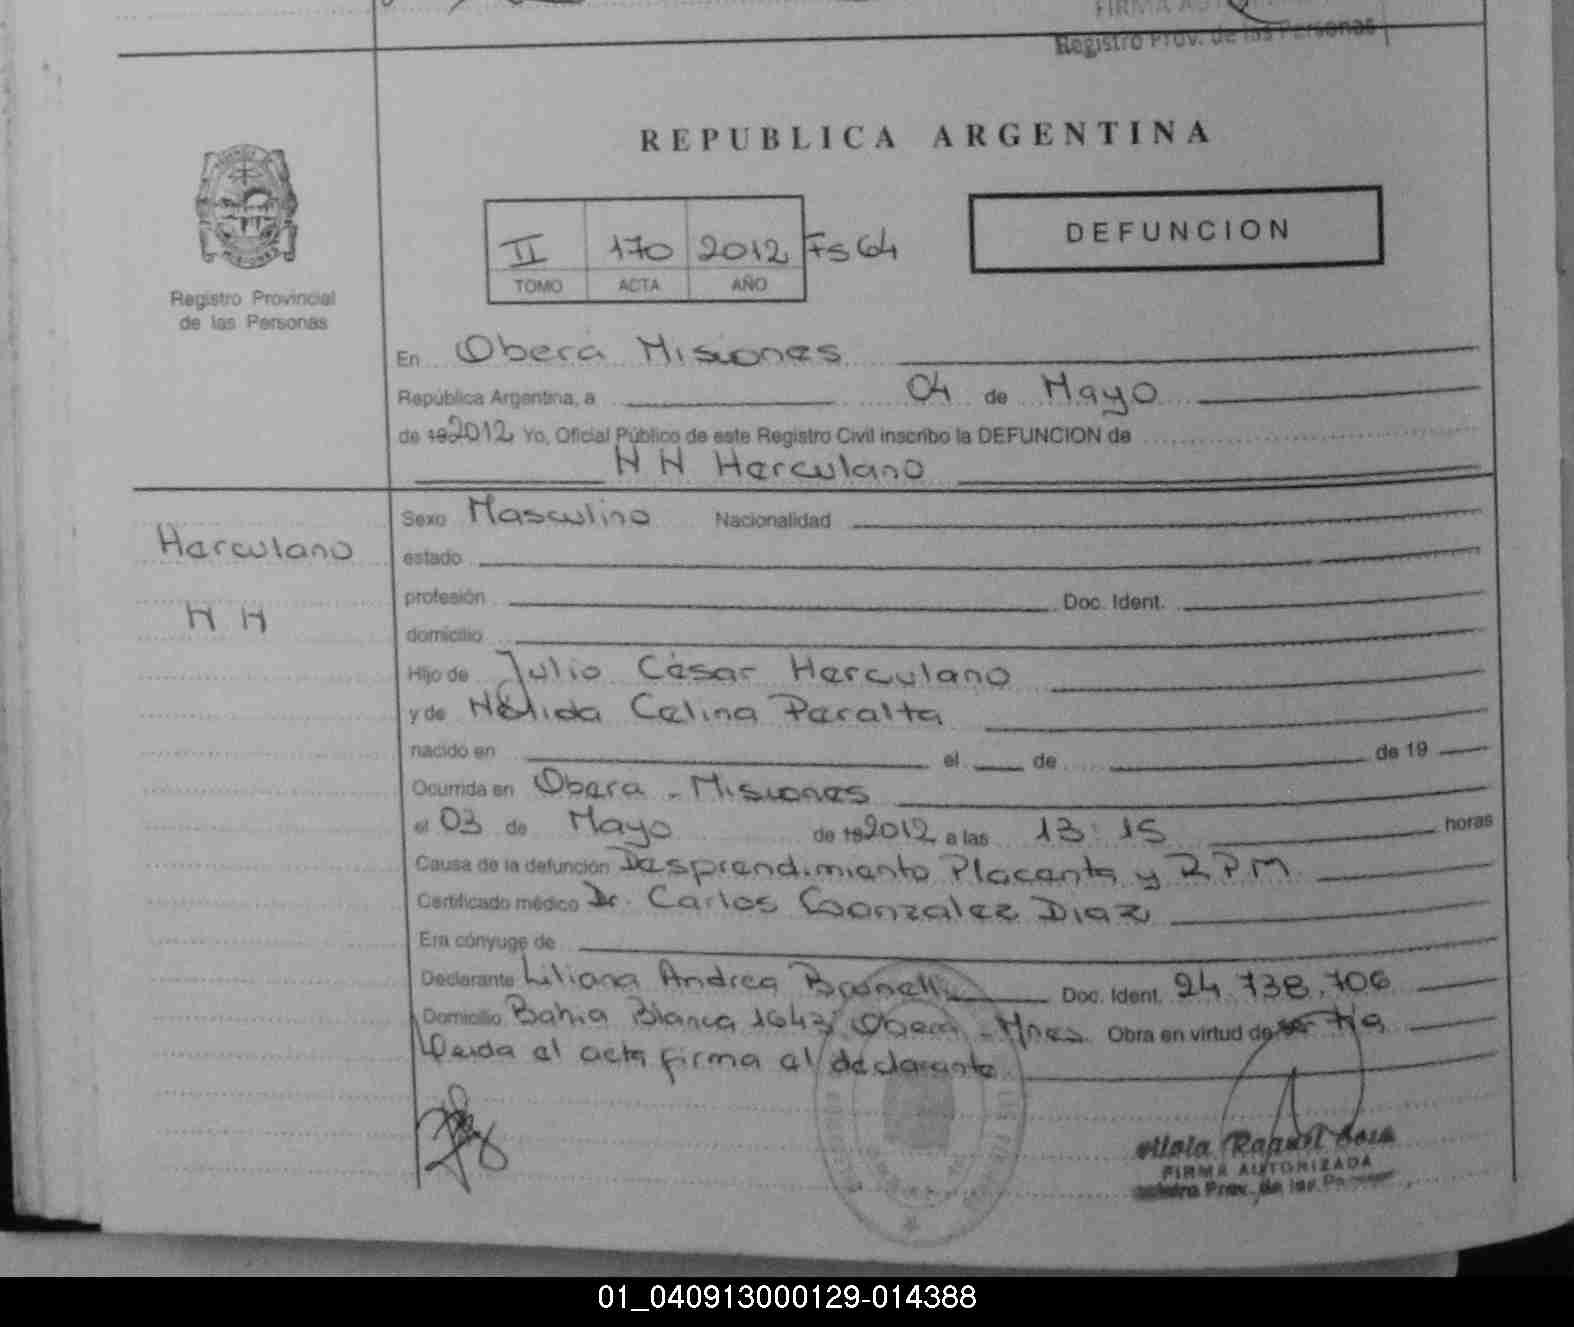 FIRMA
Registro Prov. de las Personas
REPUBLICA ARGENTINA
II 170 2012 Fs 64
TOMO ACTA AÑO
DEFUNCION
Registro Provincial
de las Personas
En Oberá Misiones
República Argentina, a 04 de Mayo
de 19 2012 Yo, Oficial Público de este Registro Civil inscribo la DEFUNCION de
N N Herculano
Herculano
N N
Sexo Masculino Nacionalidad
estado
profesión Doc. Ident.
domicilio
Hijo de Julio César Herculano
y de Nélida Celina Peralta
nacido en el de de 19
Ocurrida en Obera - Misiones
el 03 de Mayo de 19 2012 a las 13:15 horas
Causa de la defunción Desprendimiento Placenta y R.P.M
Certificado médico Dr. Carlos Gonzalez Diaz
Era cónyuge de
Declarante Liliana Andrea Doc. Ident. 24.738.706
Domicilio Bahia Blanca 1643 Obera - Mnes. Obra en virtud de
Leida el acta firma el declarante
Raquel
FIRMA AUTORIZADA
Prov. de las
01_040913000129-014388